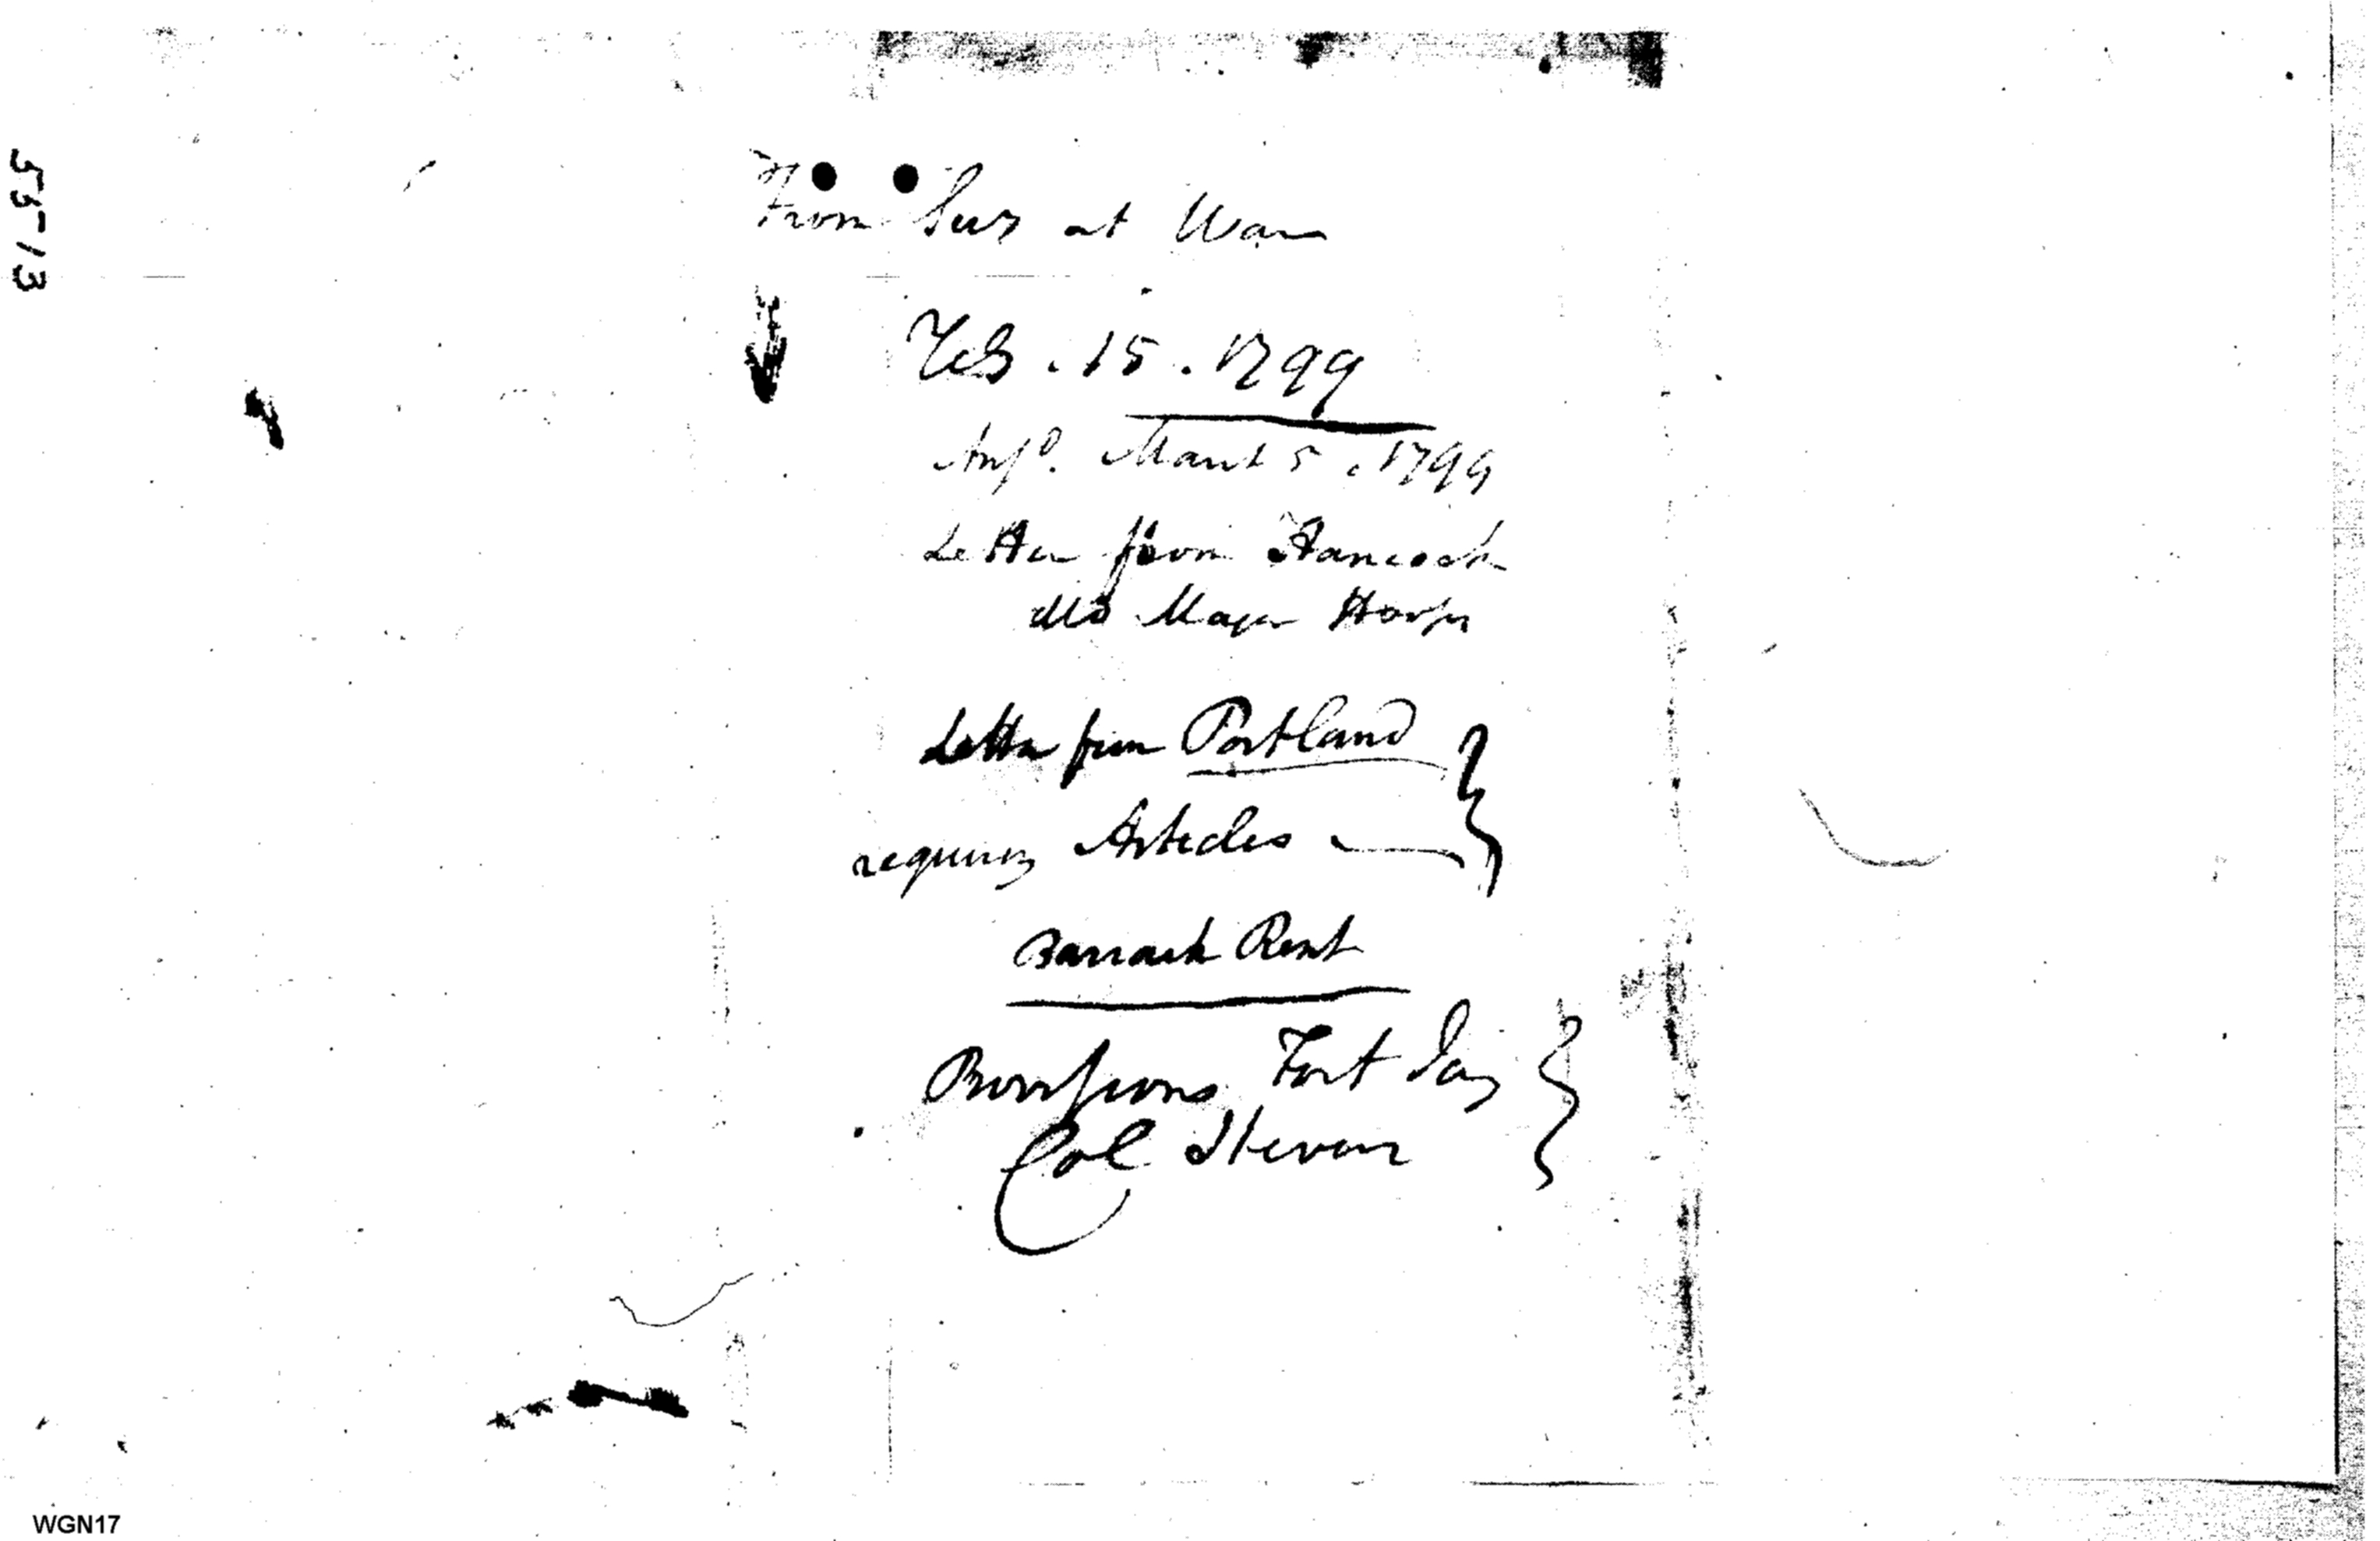 55-13
From Secy at War
Feb. 15. 1799
Ansd. March 5. 1799
Letter from Hancock
Major
Letter from Portland
requiring Articles
Barrack Rent
Provissions Fort Jay
Col Stevens
WGN17